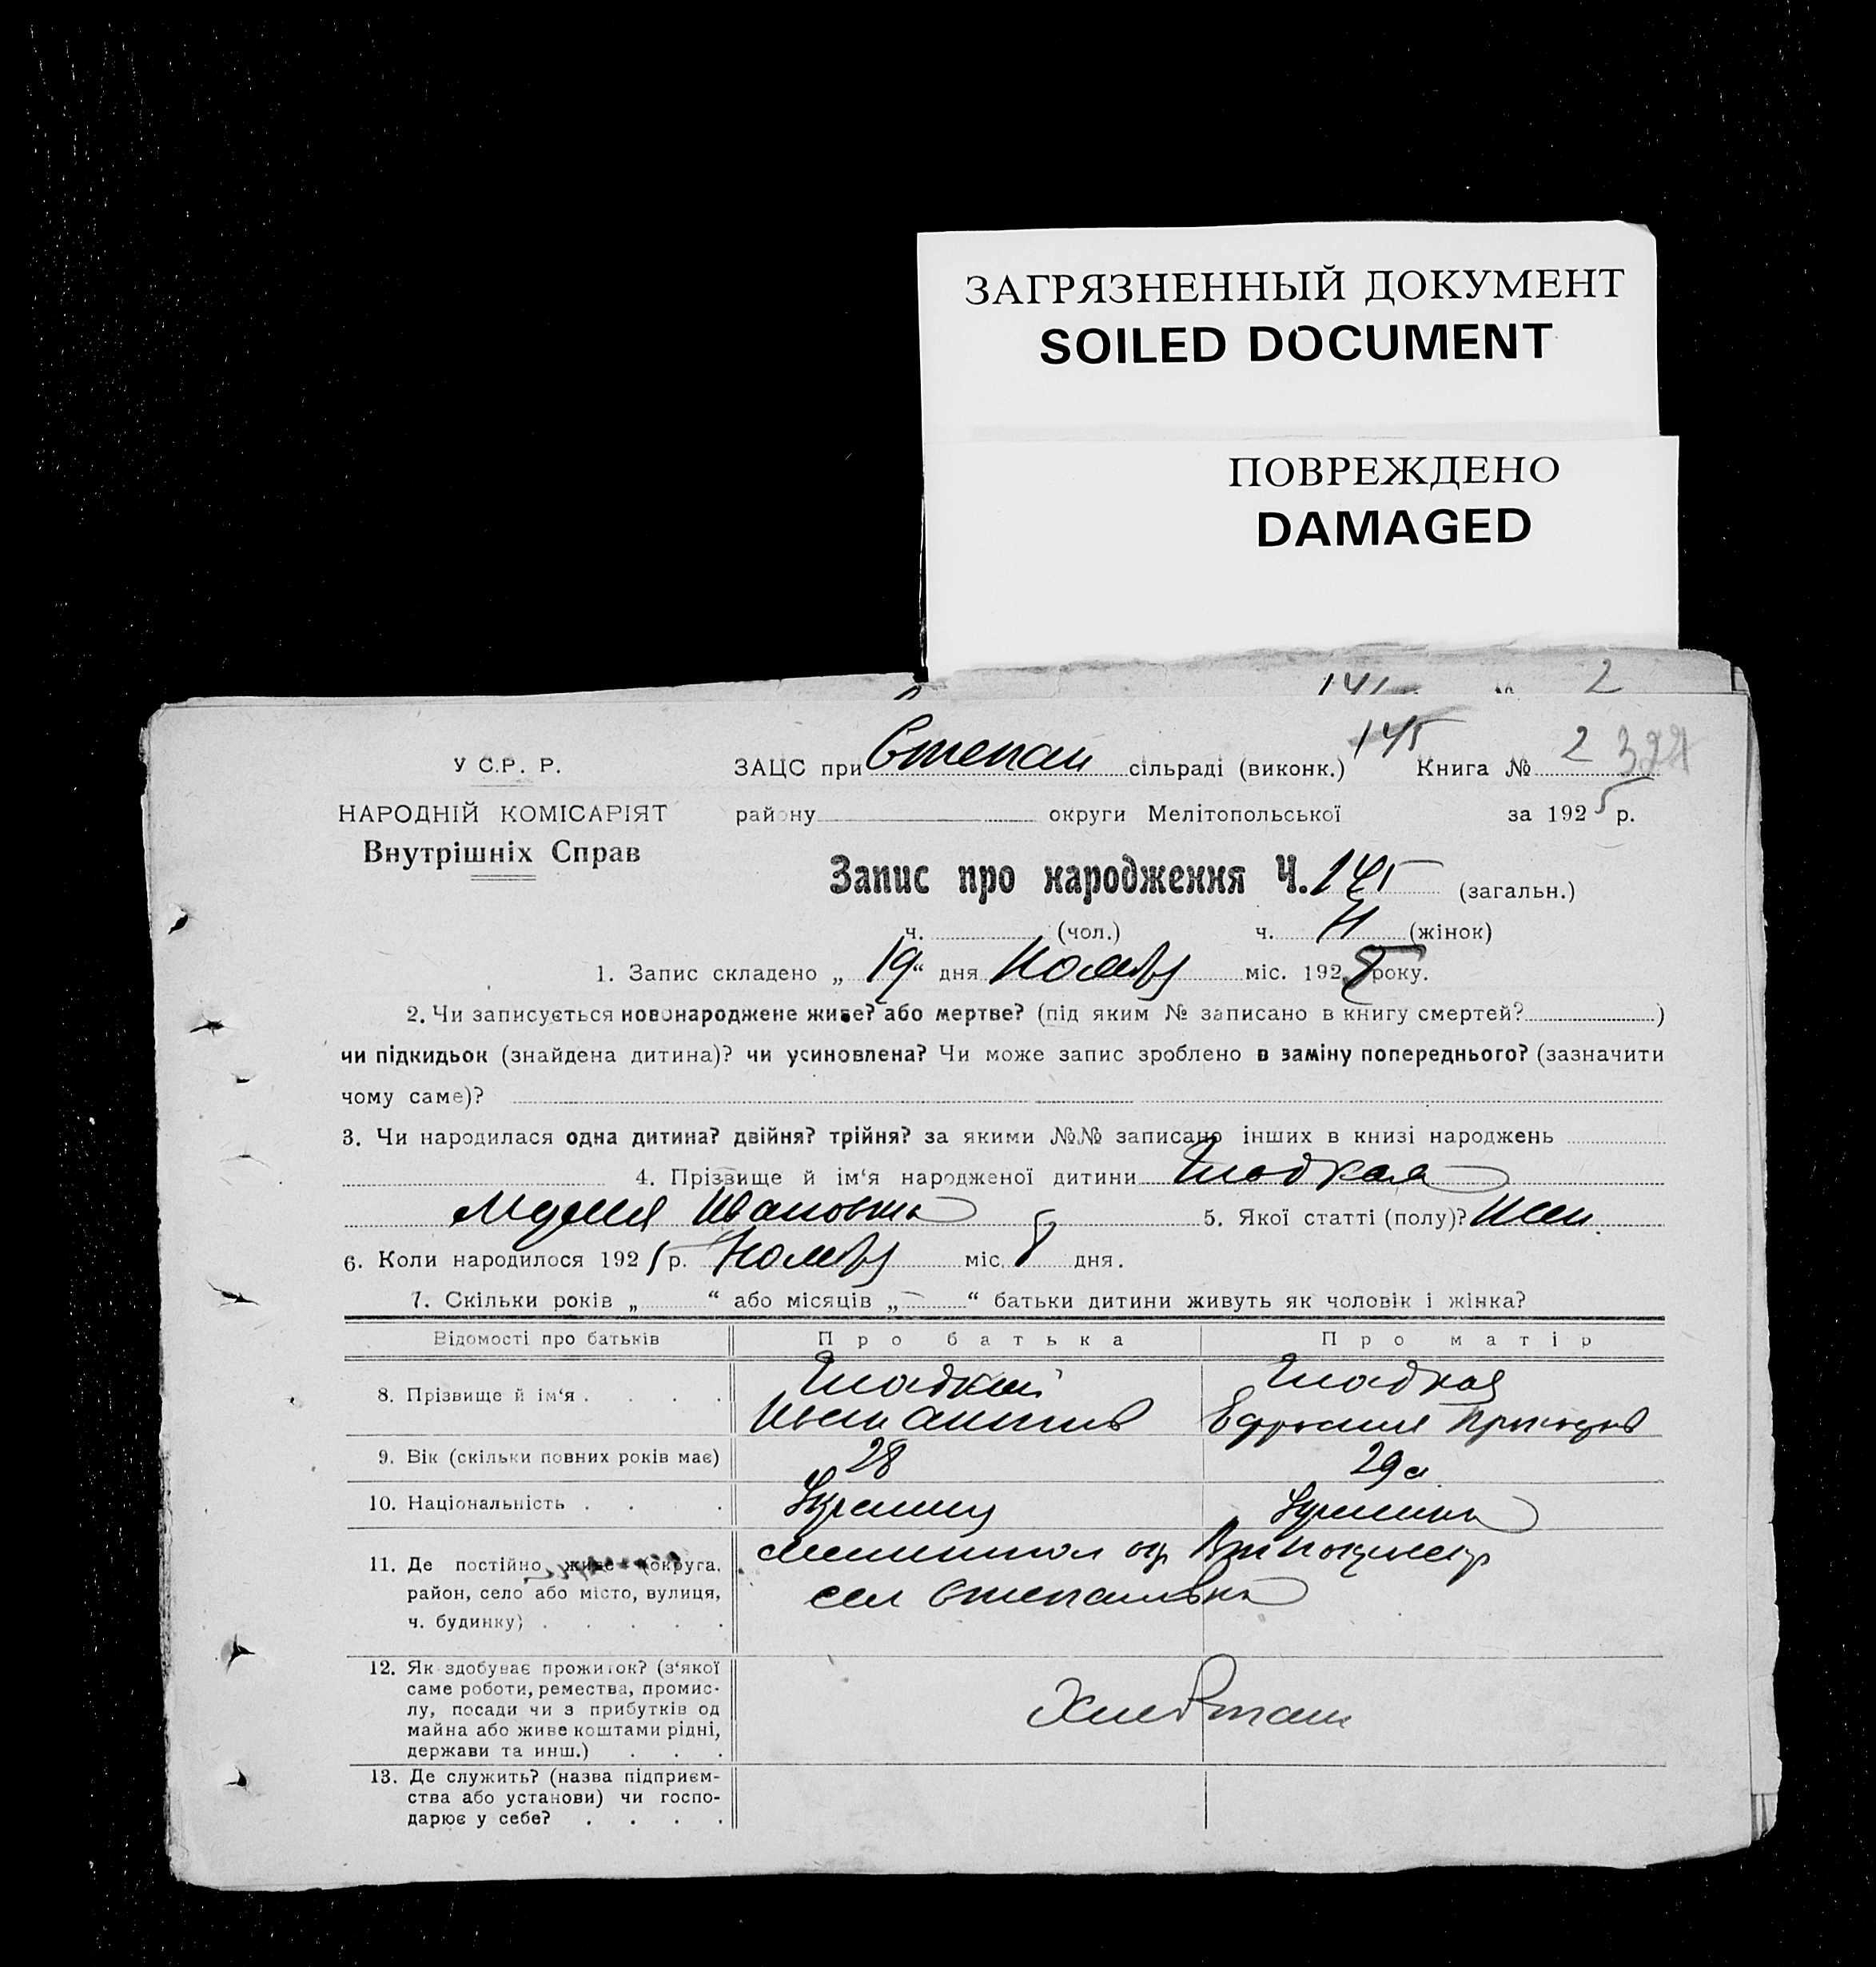 ЗАГРЯЗНЕННЫЙ ДОКУМЕНТ
SOILED DOCUMENT
ПОВРЕЖДЕНО
DAMAGED
141 2
145
У С.Р. Р. ЗАЦС при Степан сільраді (виконк.) Книга № 2
НАРОДНІЙ КОМІСАРІЯТ району округи Мелітопольської за 1925 р.
Внутрішніх Справ
Запис про народження Ч. 145 (загальн.)
ч. (чол.) ч. (жінок)
1. Запис складено „ 19 “ дня Ноября міс. 1925 року.
2. Чи записується новонароджене живе? або мертве? (під яким № записано в книгу смертей? )
чи підкидьок (знайдена дитина)? чи усиновлена? Чи може запис зроблено в заміну попереднього? (зазначити
чому саме)?
3. Чи народилася одна дитина? двійня? трійня? за якими №№ записано інших в книзі народжень
4. Прізвище й ім‘я народженої дитини Гладкая
Ивановна 5. Якої статті (полу)? Жен
6. Коли народилося 1925 р. Ноября міс. 8 дня.
7. Скільки років „ “ або місяців „ “ батьки дитини живуть як чоловік і жінка?
Відомості про батьків Про батька Про матір
8. Прізвище й ім‘я . . . . Гладкий Гладкая
Иван Ефросиния
9. Вік (скільки повних років має) 28 29
10. Національність . . . . Украинец Украинка
11. Де постійно живе (округа, Мелитопол ок
район, село або місто, вулиця, сел Степановка
ч. будинку) . . . . .
12. Як здобуває прожиток? (з‘якої
саме роботи, ремества, промис-
лу, посади чи з прибутків од Хлебопаш
майна або живе коштами рідні,
держави та инш.) . . .
13. Де служить? (назва підприєм-
ства або установи) чи госпо-
дарює у себе? . . . .